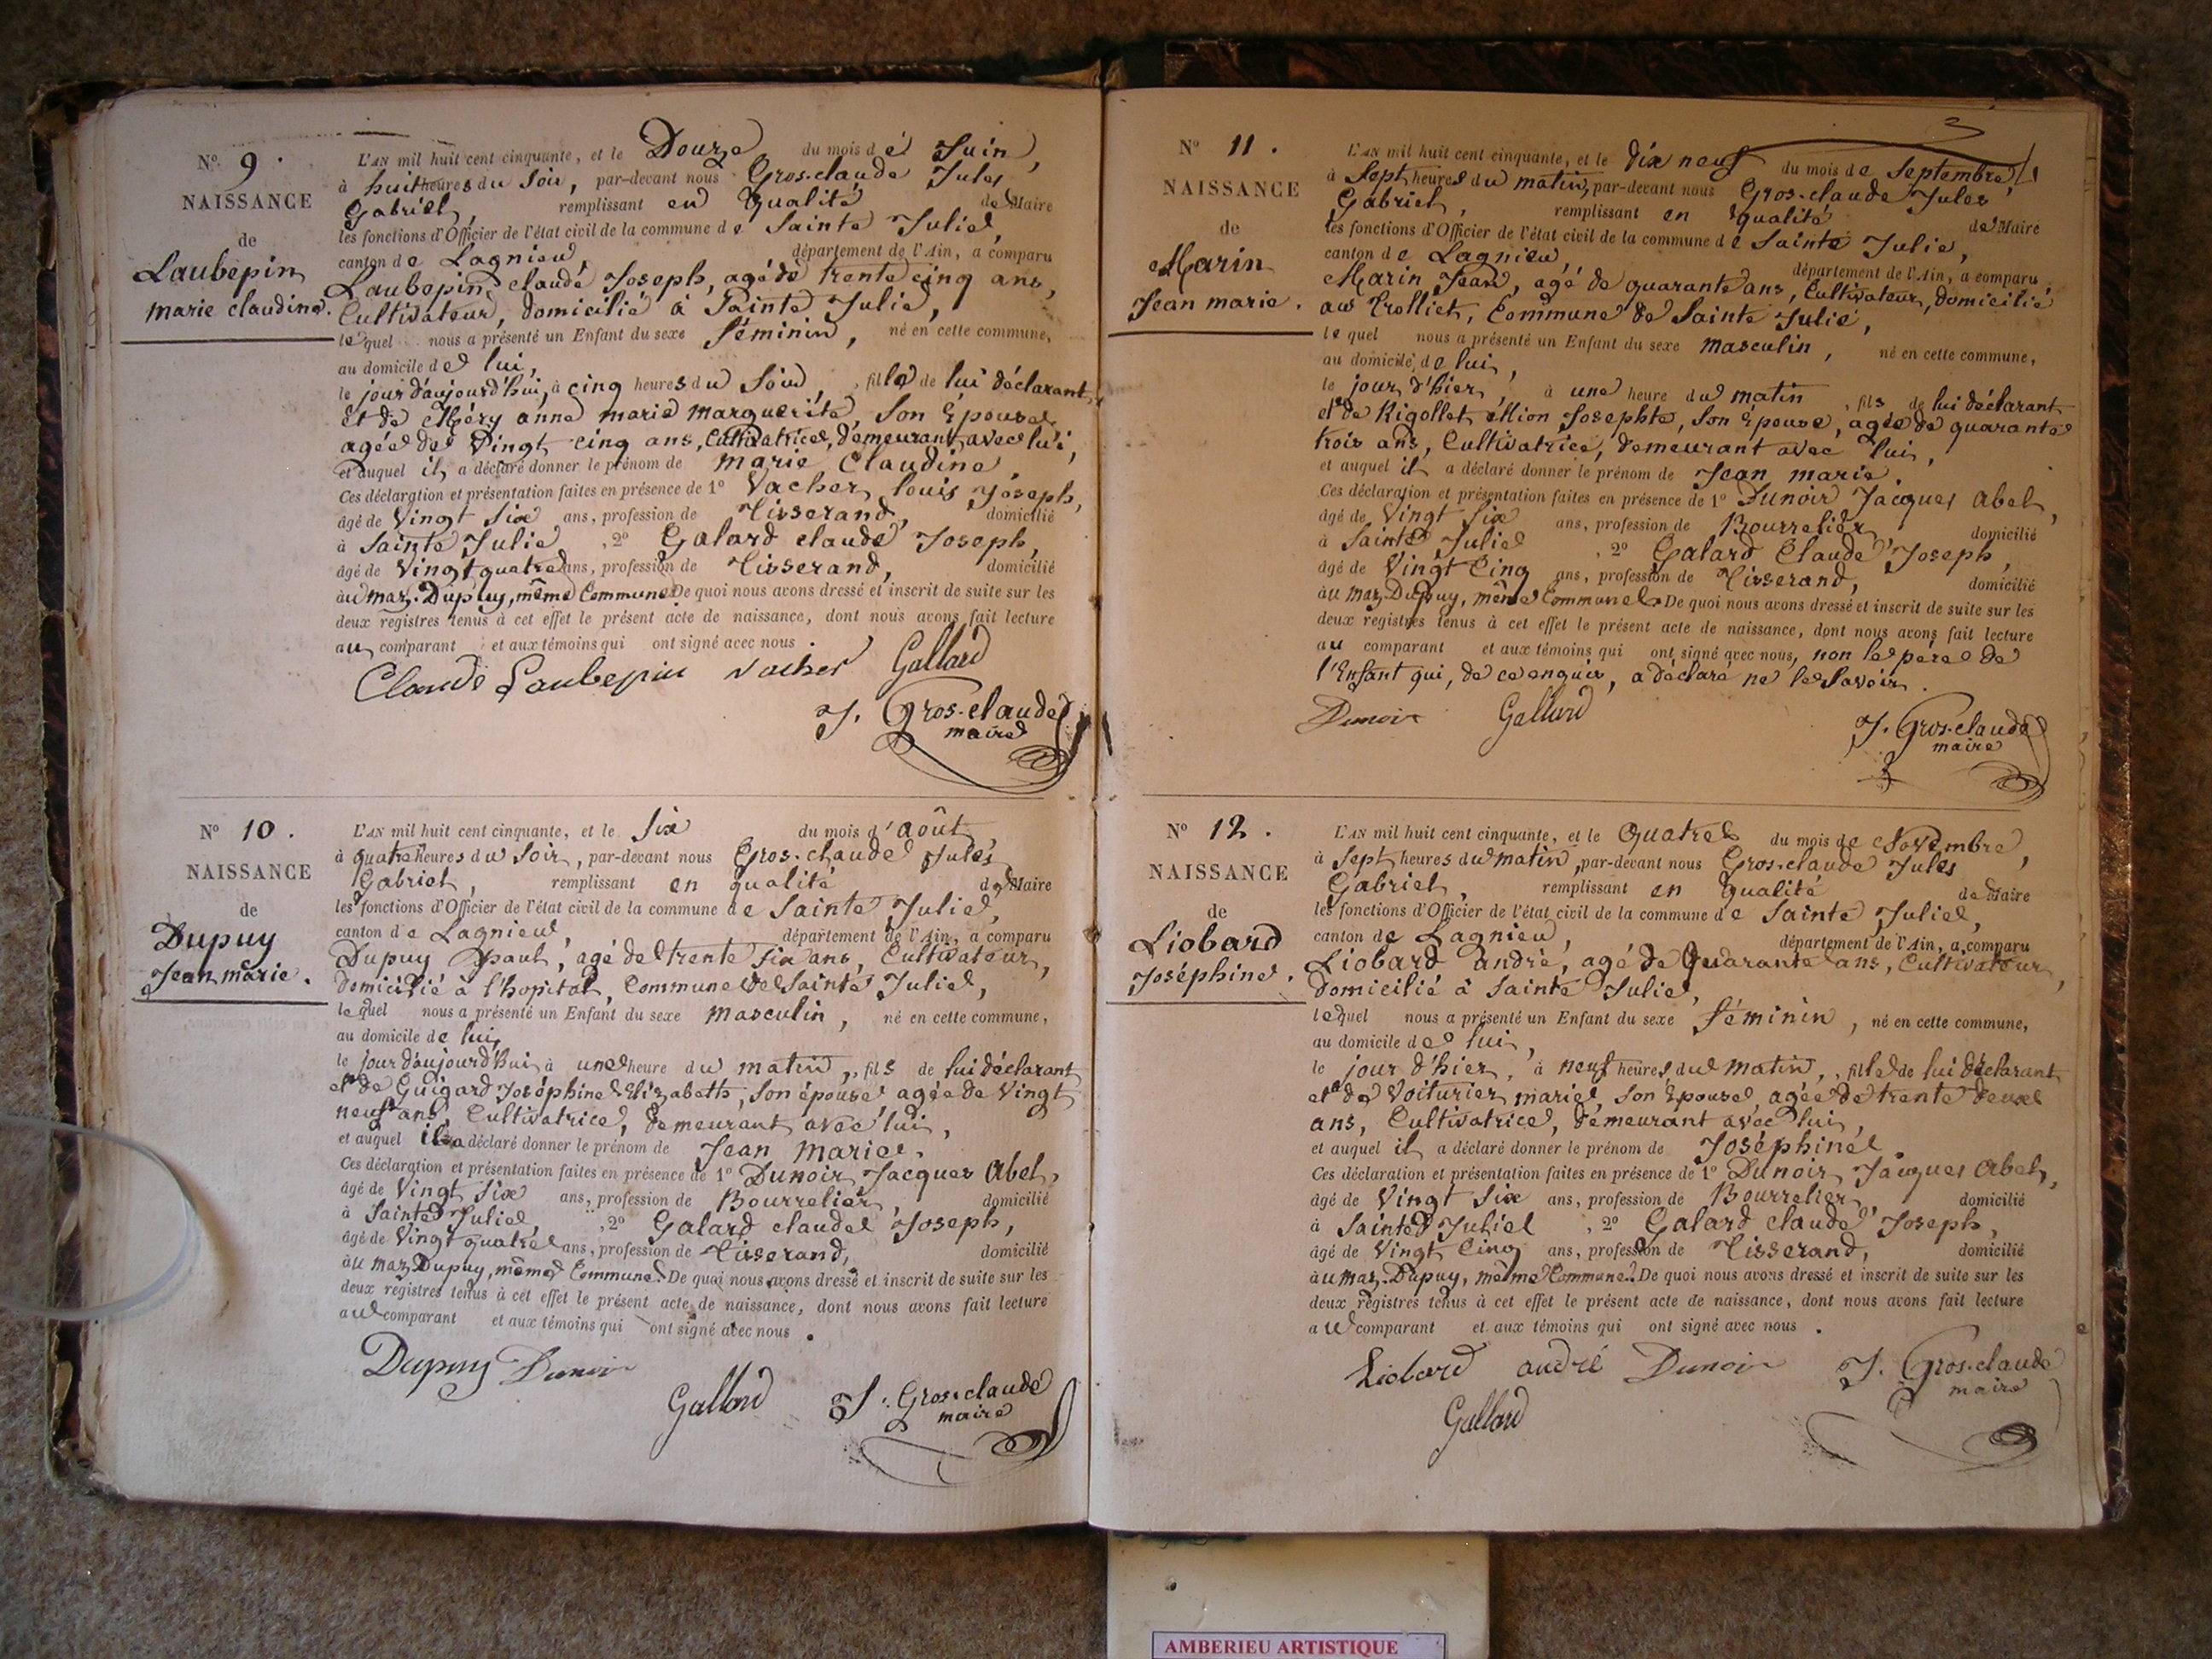 N° 9.
NAISSANCE
de
Laubepin
marie claudine.
L'AN mil huit cent cinquante, et le Douze du mois de Juin,
à huit heures du Soir, par-devant nous Gros-claude Jules
Gabriel, remplissant en qualité de Maire
les fonctions d'Officier de l'état civil de la commune de Sainte Julie,
canton de Lagnieu, département de l'Ain, a comparu
Laubepin, claude Joseph, agé de trente cinq ans,
Cultivateur, domicilié à Sainte Julie,
lequel nous a présenté un Enfant du sexe féminin, né en cette commune,
au domicile de lui,
le jour d'aujourd'hui, à cinq heures du Soir, fille de lui déclarant
et de Méry anne marie marguerite, Son Épouse,
agée de Vingt cinq ans, Cultivatrice, demeurant avec lui,
et auquel il a déclaré donner le prénom de marie Claudine,
Ces déclaration et présentation faites en présence de 1° Vacher louis Joseph,
âgé de Vingt Six ans, profession de Tisserand, domicilié
à Sainte Julie, 2° Galard claude Joseph,
âgé de Vingt quatre ans, profession de Tisserand, domicilié
au maz-Dupuy, même Commune. De quoi nous avons dressé et inscrit de suite sur les
deux registres tenus à cet effet le présent acte de naissance, dont nous avons fait lecture
au comparant et aux témoins qui ont signé avec nous.
Claude Laubepin vacher Gallard
J. Gros-claude
maire
N° 10.
NAISSANCE
de
Dupuy
Jean marie.
L'AN mil huit cent cinquante, et le Six du mois d'août,
à quatre heures du Soir, par-devant nous Gros-claude Jules
Gabriel, remplissant en qualité de Maire
les fonctions d'Officier de l'état civil de la commune de Sainte Julie,
canton de Lagnieu, département de l'Ain, a comparu
Dupuy paul, agé de trente Six ans, Cultivateur,
domicilié à l'hopital, Commune de Sainte Julie,
lequel nous a présenté un Enfant du sexe masculin, né en cette commune,
au domicile de lui,
le jour d'aujourd'hui à une heure du matin, fils de lui déclarant
et de Guigard Joséphine Elizabeth, Son épouse agée de Vingt
neuf ans, Cultivatrice, demeurant avec lui,
et auquel il a déclaré donner le prénom de Jean Marie.
Ces déclaration et présentation faites en présence de 1° Dunoir Jacques Abel,
âgé de Vingt Six ans, profession de Bourrelier, domicilié
à Sainte Julie, 2° Galard claude Joseph,
âgé de Vingt quatre ans, profession de Tisserand, domicilié
au maz-Dupuy, même Commune. De quoi nous avons dressé et inscrit de suite sur les
deux registres tenus à cet effet le présent acte de naissance, dont nous avons fait lecture
au comparant et aux témoins qui ont signé avec nous.
Dupuy Dunoir
Gallard J. Gros-claude
maire
N° 11.
NAISSANCE
de
Marin
Jean marie.
L'AN mil huit cent cinquante, et le dix neuf du mois de Septembre,
à Sept heures du matin, par-devant nous Gros-claude Jules
Gabriel, remplissant en qualité de Maire
les fonctions d'Officier de l'état civil de la commune de Sainte Julie,
canton de Lagnieu, département de l'Ain, a comparu,
Marin Jean, agé de quarante ans, Cultivateur, domicilié
au Trolliet, Commune de Sainte Julie,
lequel nous a présenté un Enfant du sexe masculin, né en cette commune,
au domicile de lui,
le jour d'hier, à une heure du matin, fils de lui déclarant
et de Rigollet Mion Josephte, Son Épouse, agée de quarante
trois ans, Cultivatrice, demeurant avec lui,
et auquel il a déclaré donner le prénom de Jean marie.
Ces déclaration et présentation faites en présence de 1° Dunoir Jacques Abel,
âgé de Vingt Six ans, profession de Bourrelier, domicilié
à Sainte Julie, 2° Galard Claude Joseph,
âgé de Vingt Cinq ans, profession de Tisserand, domicilié
au maz Dupuy, même Commune. De quoi nous avons dressé et inscrit de suite sur les
deux registres tenus à cet effet le présent acte de naissance, dont nous avons fait lecture
au comparant et aux témoins qui ont signé avec nous, non le père de
l'Enfant qui, de ce enquis, a déclaré ne le Savoir.
Dunoir Gallard
J. Gros-claude
maire
N° 12.
NAISSANCE
de
Liobard
Joséphine.
L'AN mil huit cent cinquante, et le Quatre du mois de Novembre,
à Sept heures du matin, par-devant nous Gros-claude Jules
Gabriel, remplissant en qualité de Maire
les fonctions d'Officier de l'état civil de la commune de Sainte Julie,
canton de Lagnieu, département de l'Ain, a comparu
Liobard andré, agé de Quarante ans, Cultivateur,
domicilié à Sainte Julie,
lequel nous a présenté un Enfant du sexe féminin, né en cette commune,
au domicile de lui,
le jour d'hier, à neuf heures du matin, fille de lui déclarant
et de Voiturier marie, Son Épouse, agée de trente deux
ans, Cultivatrice, demeurant avec lui,
et auquel il a déclaré donner le prénom de Joséphine
Ces déclaration et présentation faites en présence de 1° Dunoir Jacques Abel,
âgé de Vingt Six ans, profession de Bourrelier, domicilié
à Sainte Julie, 2° Galard claude Joseph,
âgé de Vingt Cinq ans, profession de Tisserand, domicilié
au maz-Dupuy, même Commune. De quoi nous avons dressé et inscrit de suite sur les
deux registres tenus à cet effet le présent acte de naissance, dont nous avons fait lecture
au comparant et aux témoins qui ont signé avec nous.
Liobard andré Dunoir J. Gros-claude
maire
Gallard
AMBERIEU ARTISTIQUE